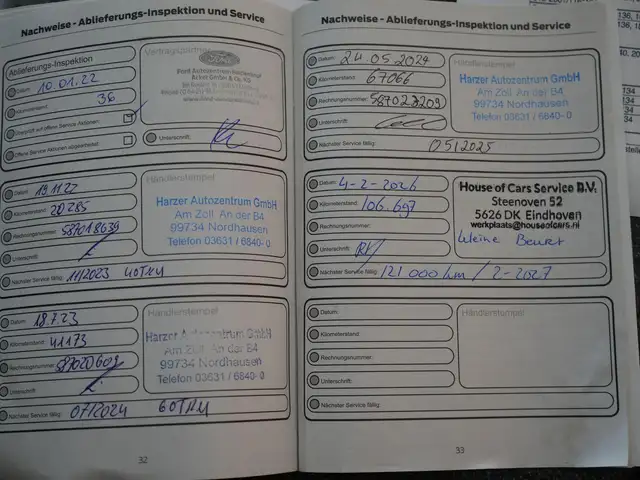 Nachweise - Ablieferungs-Inspektion und Service
Ablieferungs-Inspektion
Datum: 10.01.22
Kilometerstand: 36
Überprüft auf offene Service Aktionen:
Offene Service Aktionen abgearbeitet:
Vertragspartner
Ford
Ford Autozentrum
GmbH & Co. KG
Unterschrift:
Datum: 19.11.22
Kilometerstand: 20285
Rechnungsnummer: 587018639
Unterschrift:
Nächster Service fällig: 11/2023 40TKM
Händlerstempel
Harzer Autozentrum GmbH
Am Zoll. An der B4
99734 Nordhausen
Telefon 03631 / 6840- 0
Datum: 18.7.23
Kilometerstand: 41173
Rechnungsnummer: 587020609
Unterschrift:
Nächster Service fällig: 07/2024 60TKM
Händlerstempel
Harzer Autozentrum GmbH
Am Zoll. An der B4
99734 Nordhausen
Telefon 03631 / 6840- 0
32
Nachweise - Ablieferungs-Inspektion und Service
Datum: 24.05.2024
Kilometerstand: 67066
Rechnungsnummer: 587023209
Unterschrift:
Nächster Service fällig: 05/2025
Händlerstempel
Harzer Autozentrum GmbH
Am Zoll. An der B4
99734 Nordhausen
Telefon 03631 / 6840- 0
Datum: 4-2-2026
Kilometerstand: 106.697
Rechnungsnummer:
Unterschrift:
Nächster Service fällig: 121 000 km / 2-2027
House of Cars Service B.V.
Steenoven 52
5626 DK Eindhoven
werkplaats@houseofcars.nl
kleine Beurt
Datum:
Kilometerstand:
Rechnungsnummer:
Unterschrift:
Nächster Service fällig:
Händlerstempel
33